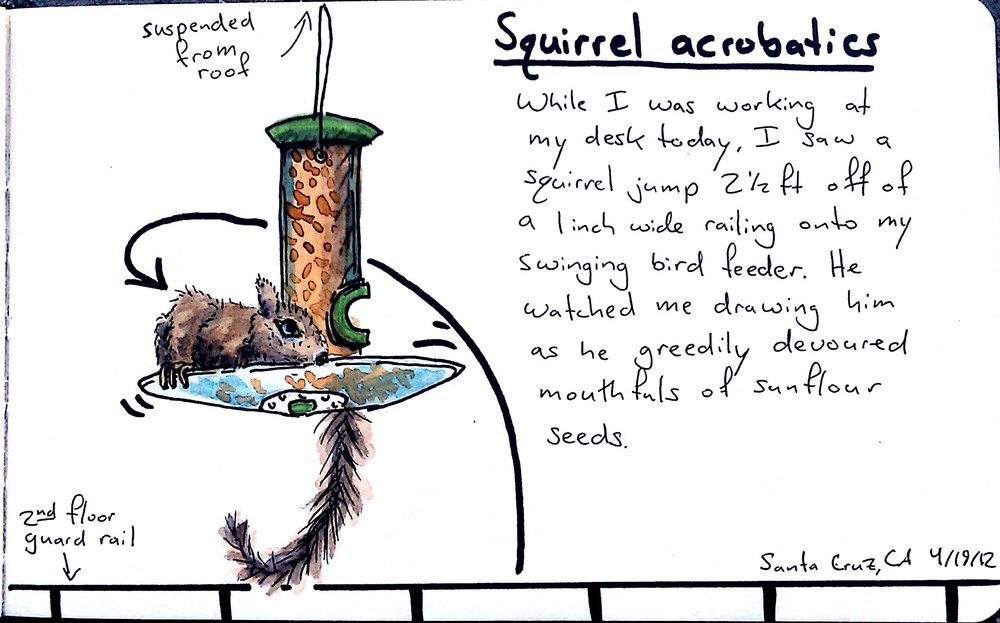 suspended
from
roof
Squirrel acrobatics
While I was working at
my desk today, I saw a
squirrel jump 2 1/2 ft off of
a 1 inch wide railing onto my
swinging bird feeder. He
watched me drawing him
as he greedily devoured
mouthfuls of sunflour
seeds.
2nd floor
guard rail
Santa Cruz, CA 4/19/12